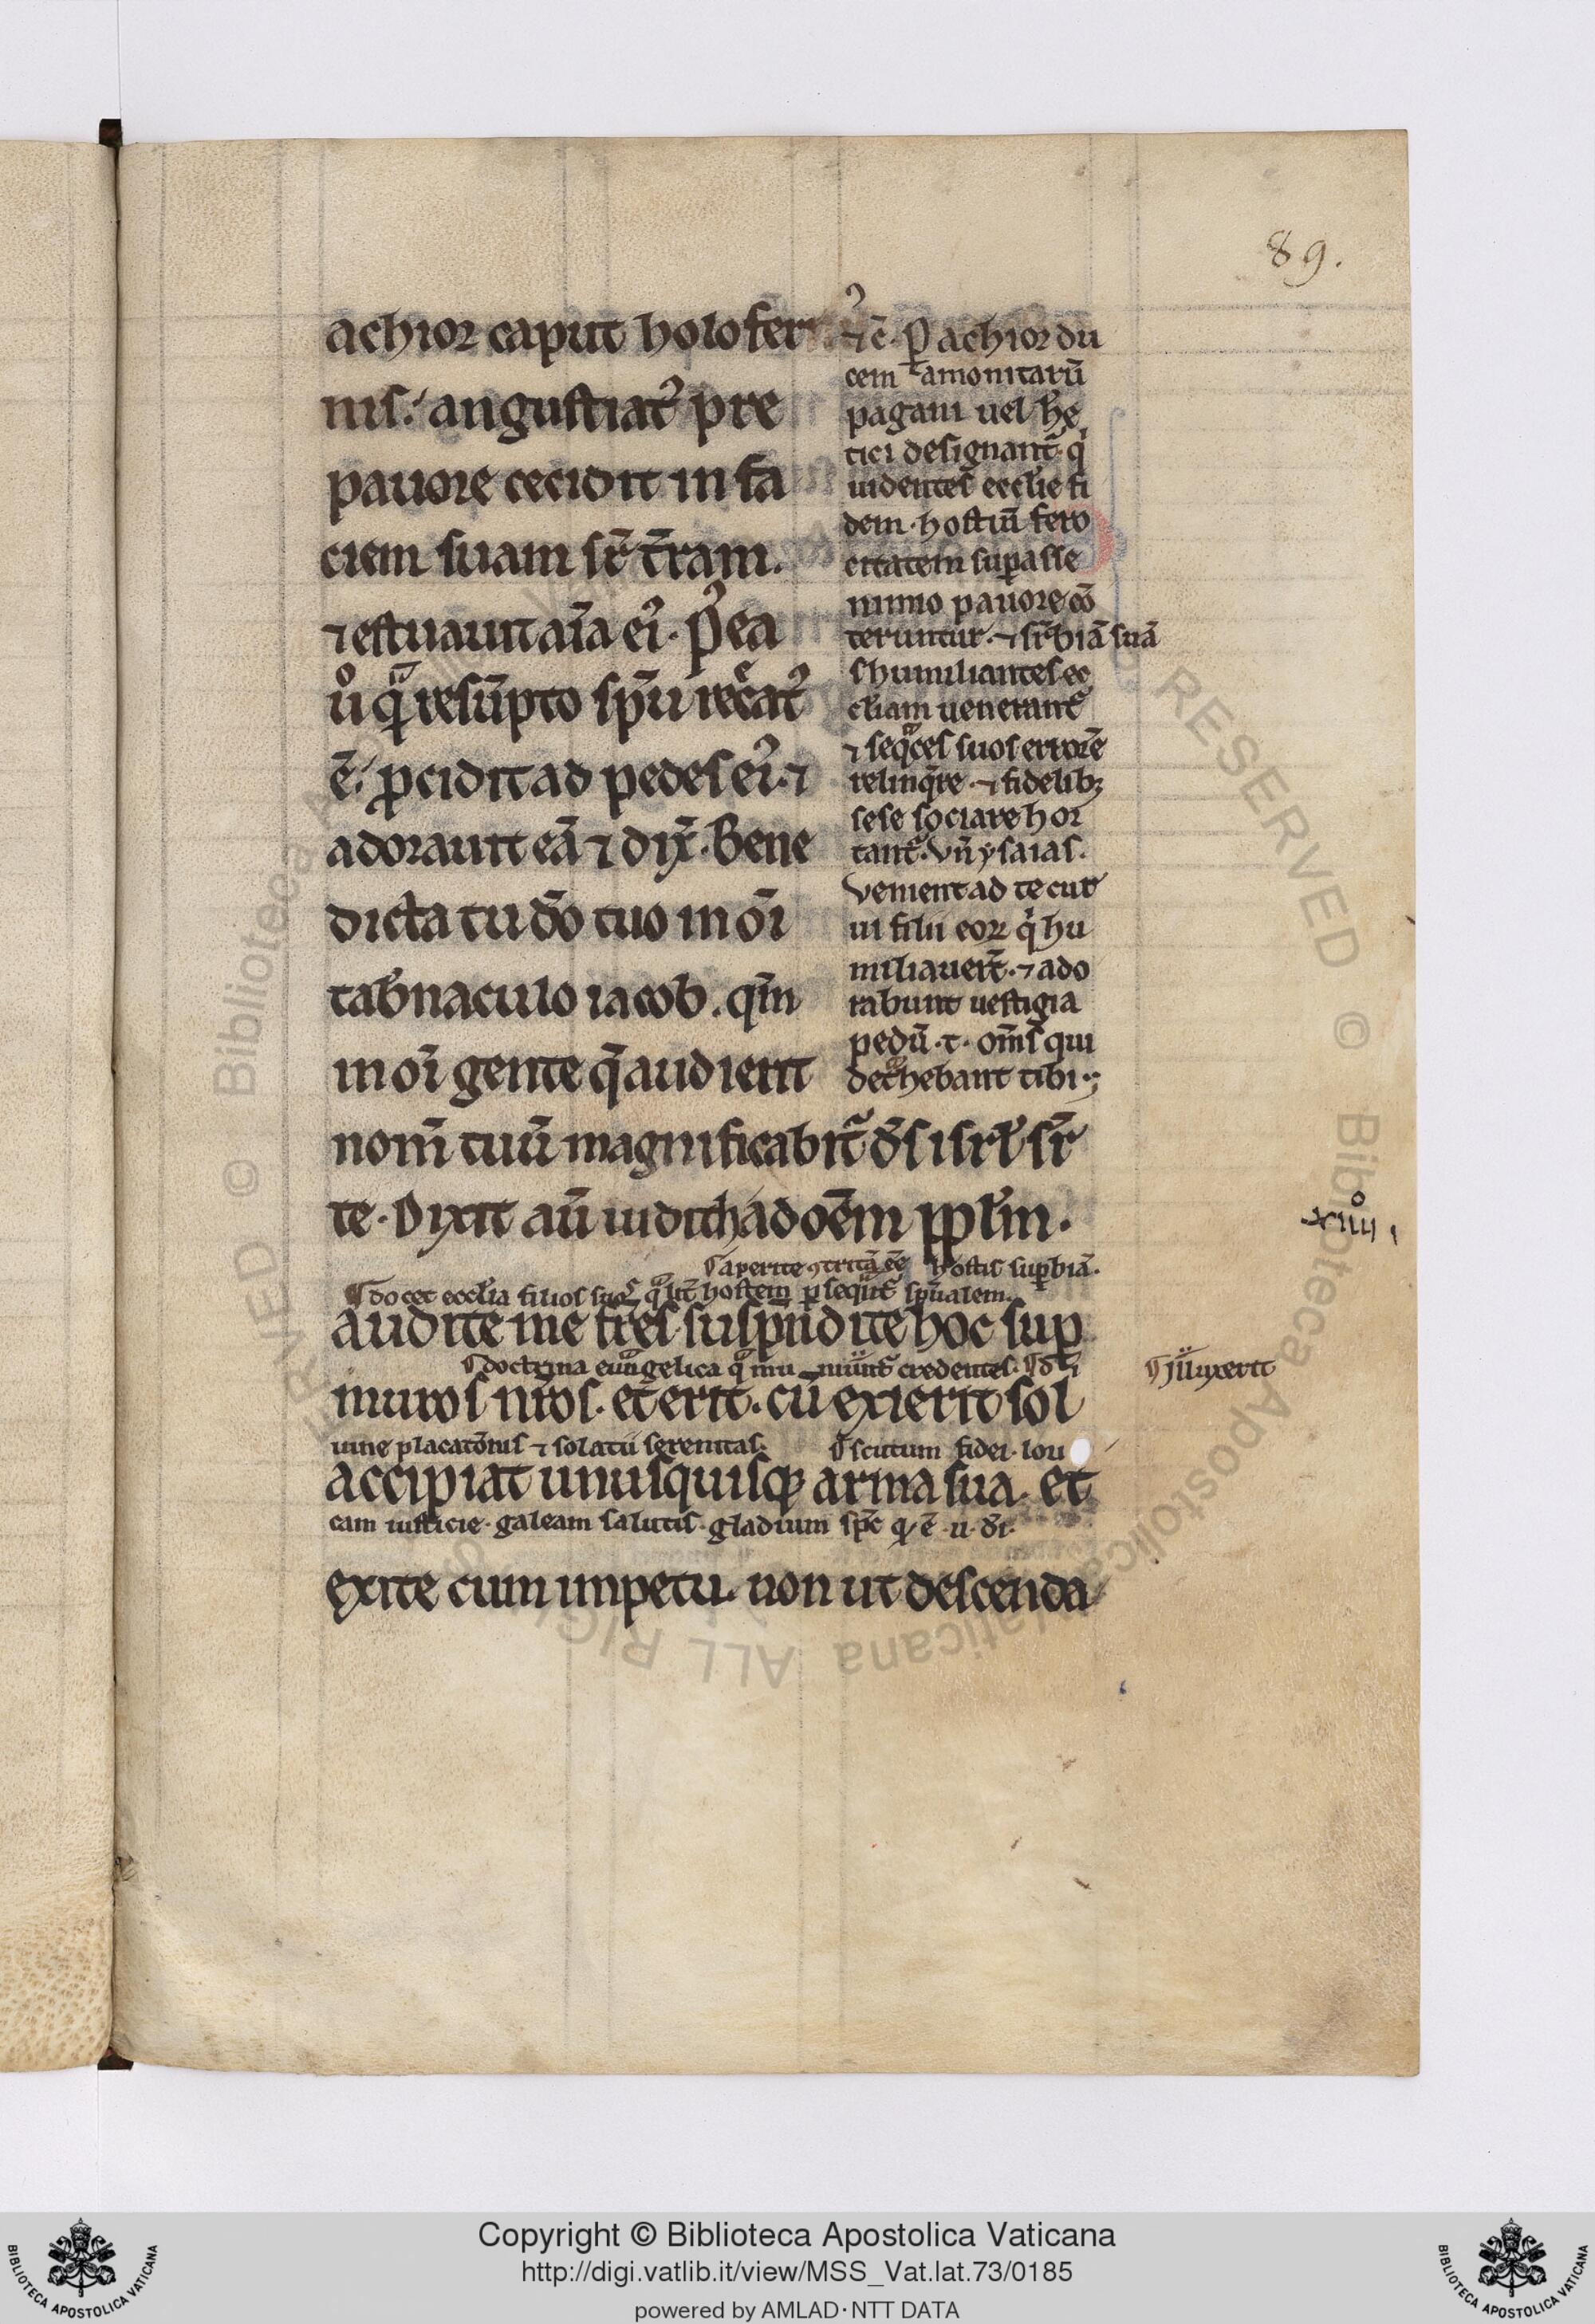 89.
achior caput holofer
nis. angustiat᷒ pre
pauore cecidit in fa
ciem suam sr̄ t̄ram.
⁊ estuauit aīa ei᷒. p᷒ea
ů qͣ resūpto spū rec̄at᷒
ē. ꝓcidit ad pedes ei᷒. ⁊
adorauit eā ⁊ dix̄. Bene
dicta tu dō tuo in oī
tab̄naculo iacob. qm̄
in oī gente q̄ audierit
nom̄ tuū magnificabit᷒ d̄s isrł sr̄
te. Dixit aū iudith ad oēm pplm̄.
⁊c̄. P achior du
cem amonitarū
pagani uel h̄e
tici designant᷒. qⁱ
uidentes ecclīe fi
dem. hostiū fero
citatem suꝑasse
nimio pauore cō
teruntur. ⁊ suꝑbiā suā
s humiliantes ec
cliam uenerant᷒
⁊ seqͣces suos errorē
relinqͤre. ⁊ fidelibꝫ
sese sociare hor
tant᷒. Vn̄ ysaias.
Venient ad te cur
ui filii eoꝝ qⁱ hu
miliauert̄. ⁊ ado
rabunt uestigia
pedū. t. om̄s qui
det͛hebant tibi.
xiiii
¶ aperite ꝯtritā eē hostis suꝑbiā.
¶ docet ecclīa filios suos qͣlit᷒ hostem ꝑsequāt᷒ spūalem.
audite me fr̄es. suspēdite hoc suꝑ
¶ doctrina euāngelica qͣ mu niūnt᷒ credentes. ¶ di
muros nr̄os. et erit. cū exierit sol
¶ illuxerit
uine placatōnis ⁊ solatii serenitas. ¶ scutum fidei. lori
accipiat unusquisqꝫ arma sua. et
cam iusticie. galeam salutis. gladium spc̄ qđ ē u. dī.
exite cum impetu. non ut descenda
Copyright © Biblioteca Apostolica Vaticana
http://digi.vatlib.it/view/MSS_Vat.lat.73/0185
powered by AMLAD·NTT DATA
BIBLIOTECA APOSTOLICA VATICANA
BIBLIOTECA APOSTOLICA VATICANA